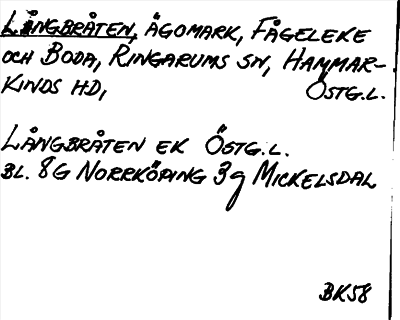 LÅNGBRÅTEN, ÄGOMARK, FÅGELEKE
OCH BODA, RINGARUMS SN, HAMMAR-
KINDS HD, ÖSTG.L.
LÅNGBRÅTEN EK ÖSTG.L.
BL. 8G NORRKÖPING 3g MICKELSDAL
BK58